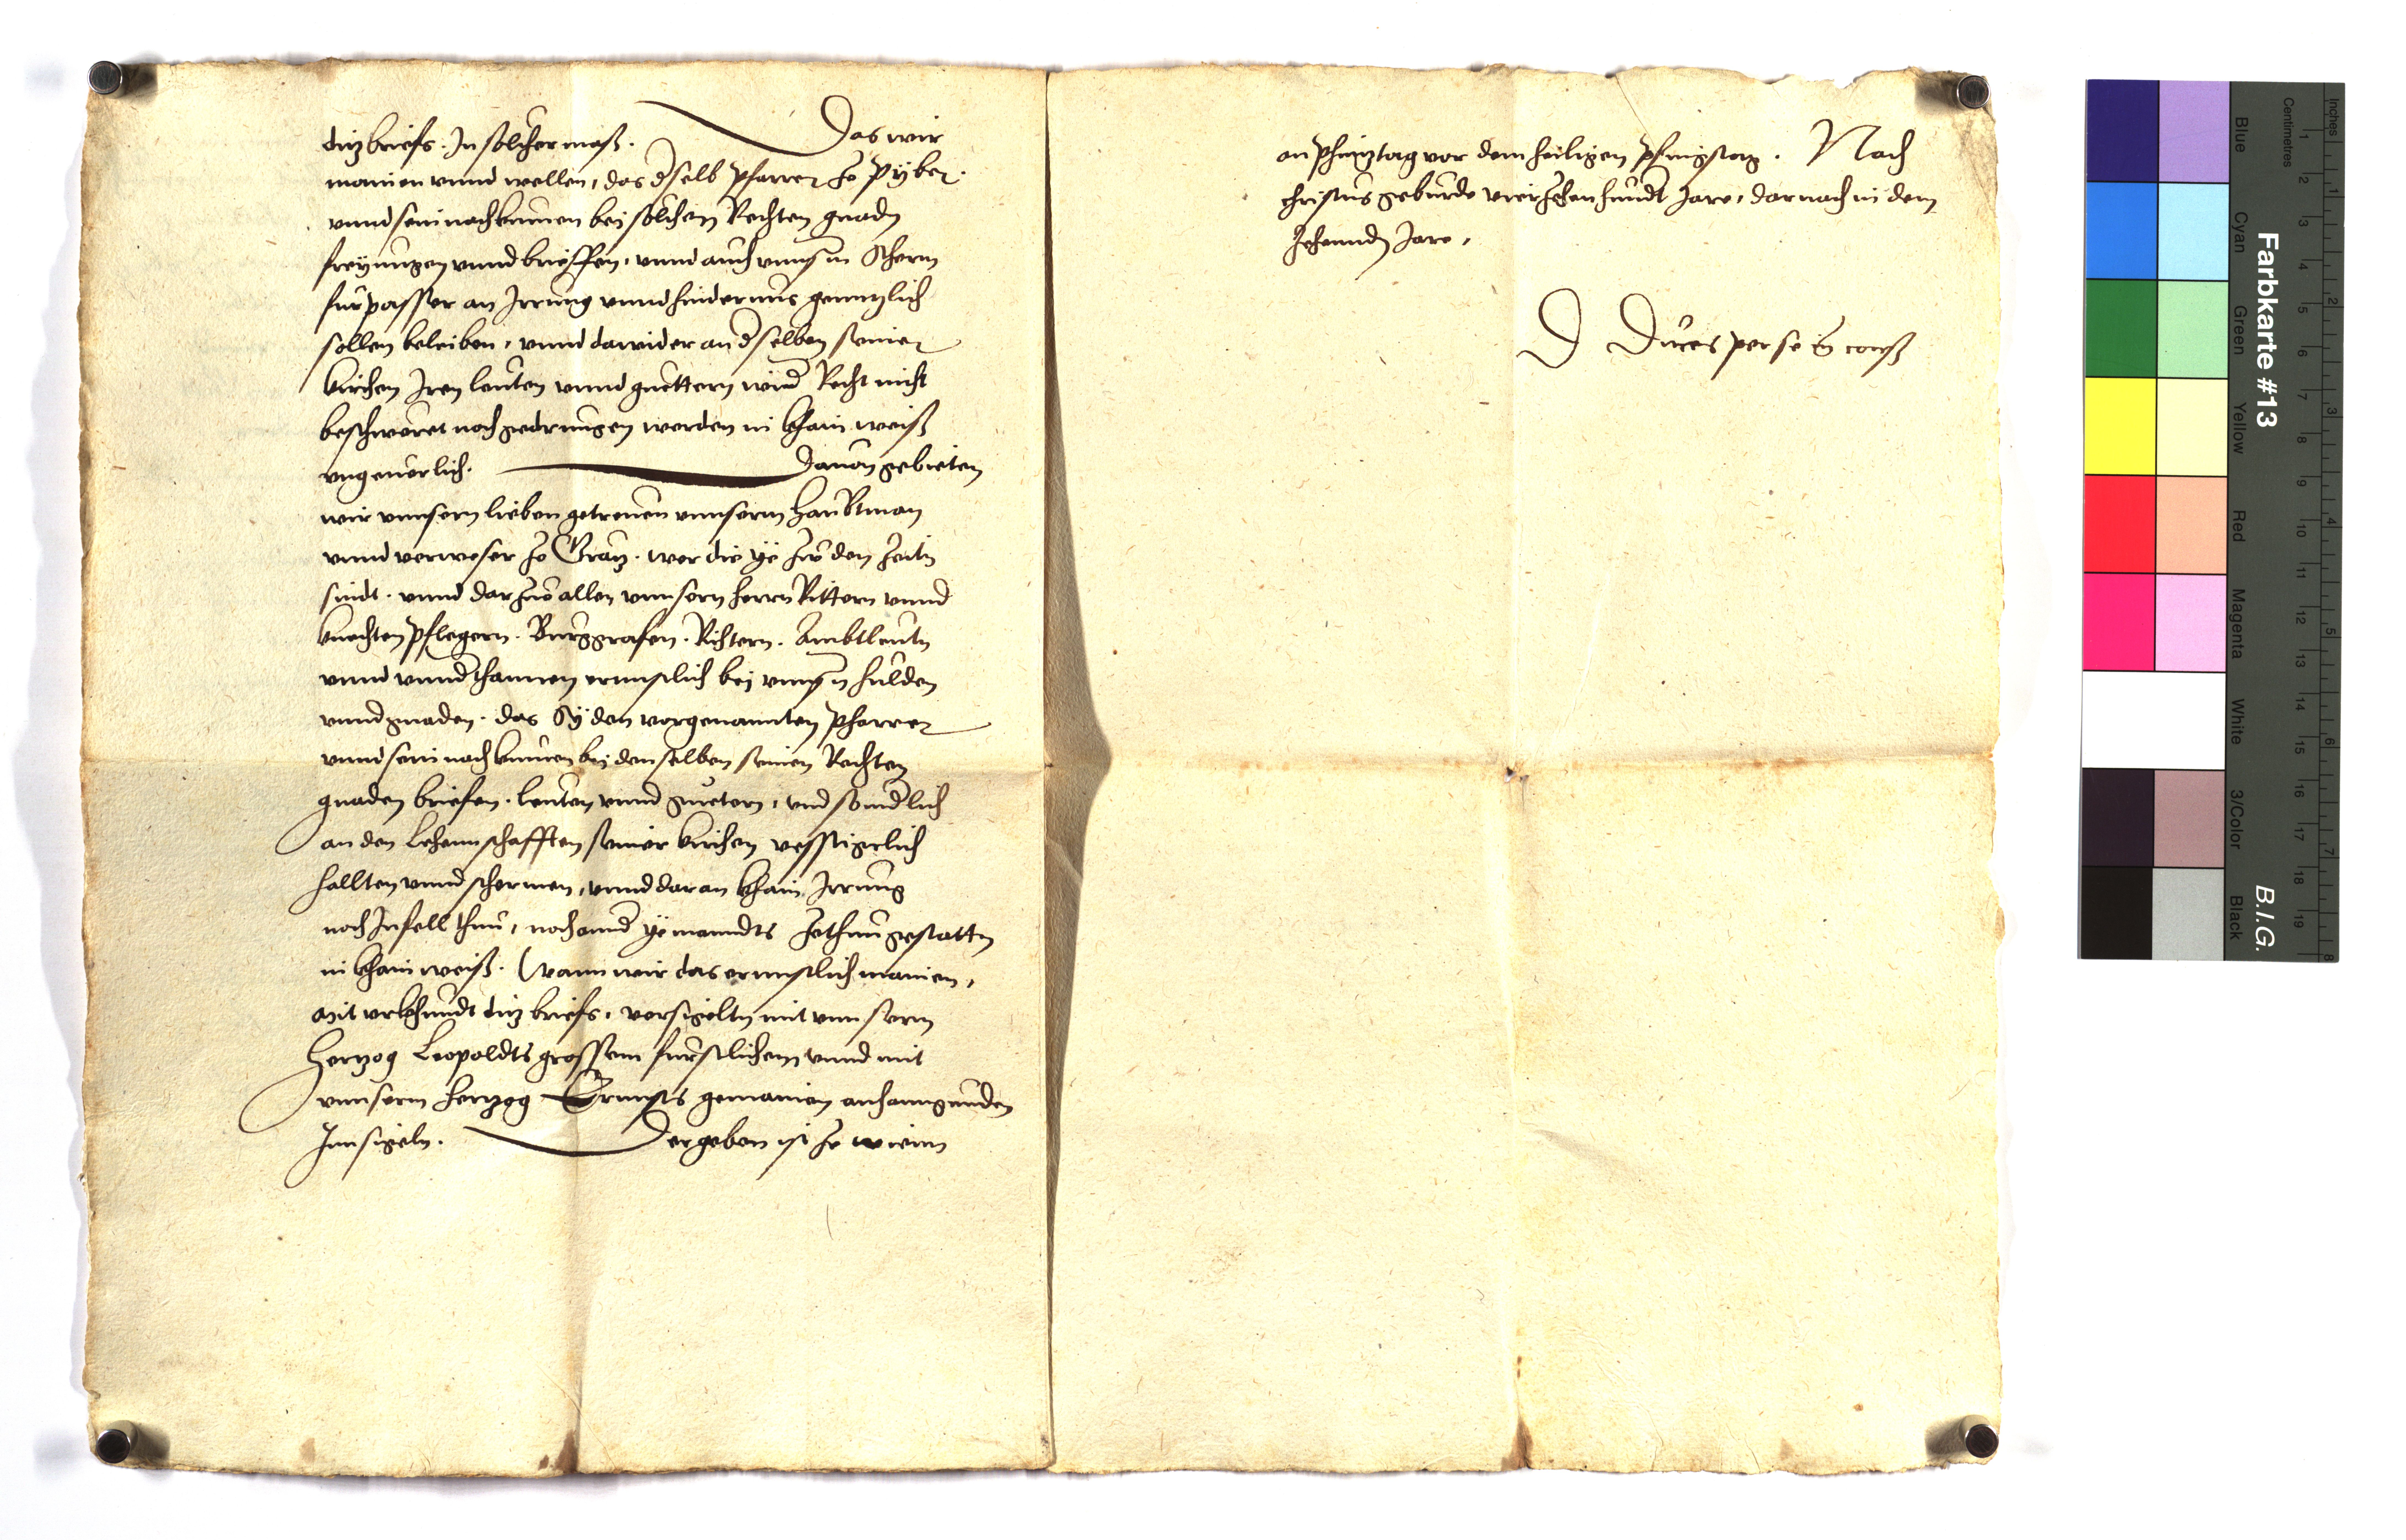 ditz briefs. In solicher mass. Das wir
mainen vnnd wellen, das dselb pfarrer ze Pyber.
vnnd sein nachkumen bei solichen Rechten gnadn
freyungen vnnd brieffen, vnnd auch vnnsn Scherm
furpasser an Irrung vnnd hindernus genntzlich
sollen beleiben, vnnd dawider an dselben seiner
kirchen Iren leuten vnnd guettern wider Recht nicht
beschweret noch gedrungen werden in khain weiß
vngeuerlich. Dauon gebieten
wir vnnsern lieben getreuen vnnserm haubtman
vnnd verweser ze Gratz. wer die ye zw den zeitn
sindt. vnnd darzuo allen vnnsern herrn Rittern vnnd
knechten pflegern. Burggrafen. Richtern. Ambtleutn
vnnd vnndthannen ernnstlich bei vnnsn hulden
vnnd gnaden. das Sy den vorgenannten pfarrer
vnnd sein nachkumen bei denselben seinen Rechten
gnaden briefen. leuten vnnd guetern, vnd sonndlich
an den Lehennschafften seiner kirchen vesstigclich
hallten vnnd schermen, vnnd daran khain Irrung
noch Infell thun, noch annd yemanndts zethun gestattn
in khain weiß. wann wir das ernnstlich mainen,
Mit vrkhundt ditz briefs, versigeltn mit vnnserm
Hertzog Leopoldts grossem furstlichem vnnd mit
vnnserm hertzog Ernnsts gemainen anhanngunden
Innsigeln. Der geben ist ze wienn
an Phintztag vor dem heiligen pfingstag. Nach
christus geburde vierzehenhundt Jare, darnach in dem
zehennden Jare,
D Duces per se in cons